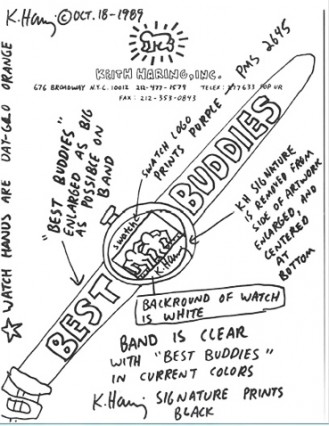 K. Haring ©OCT.18-1989
KEITH HARING, INC.
676 BROADWAY N.Y.C. 10012 212-477-1579 TELEX: 217633 POP UR
FAX: 212-353-0843
PMS 2645
☆ WATCH HANDS ARE DAY-GLO ORANGE
"BEST BUDDIES"
ENLARGED AS BIG
AS POSSIBLE ON
BAND
SWATCH LOGO
PRINTS PURPLE
BEST BUDDIES
swatch
K. Haring
KH SIGNATURE
IS REMOVED FROM
SIDE OF ARTWORK
ENLARGED, AND
CENTERED
AT
BOTTOM
BACKROUND OF WATCH
IS WHITE
BAND IS CLEAR
WITH "BEST BUDDIES"
IN CURRENT COLORS
K. Haring SIGNATURE PRINTS
BLACK